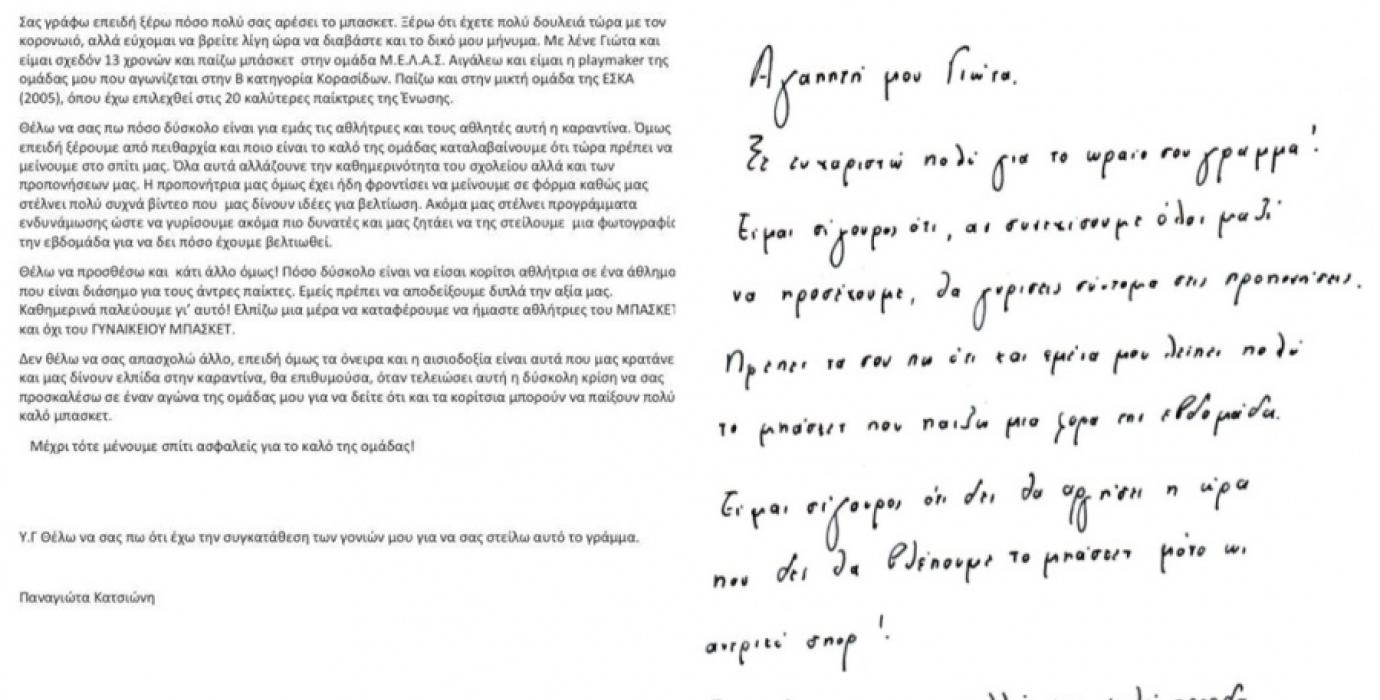 Σας γράφω επειδή ξέρω πόσο πολύ σας αρέσει το μπασκετ. Ξέρω ότι έχετε πολύ δουλειά τώρα με τον
κορονωιό, αλλά εύχομαι να βρείτε λίγη ώρα να διαβάστε και το δικό μου μήνυμα. Με λένε Γιώτα και
είμαι σχεδόν 13 χρονών και παίζω μπάσκετ στην ομάδα Μ.Ε.Λ.Α.Σ. Αιγάλεω και είμαι η playmaker της
ομάδας μου που αγωνίζεται στην Β κατηγορία Κορασίδων. Παίζω και στην μικτή ομάδα της ΕΣΚΑ
(2005), όπου έχω επιλεχθεί στις 20 καλύτερες παίκτριες της Ένωσης.
Θέλω να σας πω πόσο δύσκολο είναι για εμάς τις αθλήτριες και τους αθλητές αυτή η καραντίνα. Όμως
επειδή ξέρουμε από πειθαρχία και ποιο είναι το καλό της ομάδας καταλαβαίνουμε ότι τώρα πρέπει να
μείνουμε στο σπίτι μας. Όλα αυτά αλλάζουνε την καθημερινότητα του σχολείου αλλά και των
προπονήσεων μας. Η προπονήτρια μας όμως έχει ήδη φροντίσει να μείνουμε σε φόρμα καθώς μας
στέλνει πολύ συχνά βίντεο που μας δίνουν ιδέες για βελτίωση. Ακόμα μας στέλνει προγράμματα
ενδυνάμωσης ώστε να γυρίσουμε ακόμα πιο δυνατές και μας ζητάει να της στείλουμε μια φωτογραφίc
την εβδομάδα για να δει πόσο έχουμε βελτιωθεί.
Θέλω να προσθέσω και κάτι άλλο όμως! Πόσο δύσκολο είναι να είσαι κορίτσι αθλήτρια σε ένα άθλημα
που είναι διάσημο για τους άντρες παίκτες. Εμείς πρέπει να αποδείξουμε διπλά την αξία μας.
Καθημερινά παλεύουμε γι' αυτό! Ελπίζω μια μέρα να καταφέρουμε να ήμαστε αθλήτριες του ΜΠΑΣΚΕΤ
και όχι του ΓΥΝΑΙΚΕΙΟΥ ΜΠΑΣΚΕΤ.
Δεν θέλω να σας απασχολώ άλλο, επειδή όμως τα όνειρα και η αισιοδοξία είναι αυτά που μας κρατάνε
και μας δίνουν ελπίδα στην καραντίνα, θα επιθυμούσα, όταν τελειώσει αυτή η δύσκολη κρίση να σας
προσκαλέσω σε έναν αγώνα της ομάδας μου για να δείτε ότι και τα κορίτσια μπορούν να παίξουν πολύ
καλό μπασκετ.
Μέχρι τότε μένουμε σπίτι ασφαλείς για το καλό της ομάδας!
Υ.Γ Θέλω να σας πω ότι έχω την συγκατάθεση των γονιών μου για να σας στείλω αυτό το γράμμα.
Παναγιώτα Κατσιώνη
Αγαπητή μου Γιώτα.
Σε ευχαριστώ πολύ για το ωραίο σου γράμμα!
Είμαι σίγουρος ότι, αν συνεχίσουμε όλοι μαζί
να προσέχουμε, θα γυρίσεις σύντομα στις προπονήσεις.
Πρέπει να σου πω ότι και εμένα μου λείπει πολύ
το μπάσκετ που παίζω μια φορά την εβδομάδα.
Είμαι σίγουρος ότι δεν θα αργήσει η ώρα
που δεν θα βλέπουμε το μπάσκετ μόνο ως
αντρικό σπορ!